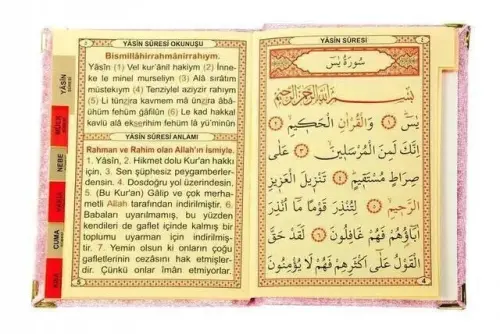 YÂSÎN SÛRESİ OKUNUŞU
Bismillâhirrahmânirrahıym.
Yâsîn (1) Vel kur'ânil hakiym (2) İnne-
ke le minel murseliyn (3) Alâ sırâtım
müstekıym (4) Tenziylel aziyzir rahıym
(5) Li tünzira kavmem mâ ünzira âbâ-
ühüm fehüm gâfilûn (6) Le kad hakkal
kavlü alâ ekserihim fehüm lâ yü'minûn
YÂSÎN SÛRESİ ANLAMI
Rahman ve Rahim olan Allah'ın İsmiyle.
1. Yâsîn, 2. Hikmet dolu Kur'an hakkı
için, 3. Sen şüphesiz peygamberler-
densin. 4. Dosdoğru yol üzerindesin.
5. (Bu Kur'an) Gâlip ve çok merha-
metli Allah tarafından indirilmiştir. 6.
Babaları uyarılmamış, bu yüzden
kendileri de gaflet içinde kalmış bir
toplumu uyarman için indirilmiş-
tir. 7. Yemin olsun ki onların çoğu
gafletlerinin cezasını hak etmişler-
dir. Çünkü onlar îman etmiyorlar.
5
YÂSİN
MÜLK
NEBE
CUMA
YÂSÎN SÛRESİ
٤
سُورَةُ يٰسٓ
بِسْمِ اللّٰهِ الرَّحْمٰنِ الرَّحِيمِ
يٰسٓ ﴿١﴾ وَالْقُرْاٰنِ الْحَكِيمِ ﴿٢﴾
اِنَّكَ لَمِنَ الْمُرْسَلِينَ ﴿٣﴾ عَلٰى
صِرَاطٍ مُسْتَقِيمٍ ﴿٤﴾ تَنْزِيلَ الْعَزِيزِ
الرَّحِيمِ ﴿٥﴾ لِتُنْذِرَ قَوْمًا مَٓا اُنْذِرَ
اٰبَٓاؤُهُمْ فَهُمْ غَافِلُونَ ﴿٦﴾ لَقَدْ حَقَّ
الْقَوْلُ عَلٰٓى اَكْثَرِهِمْ فَهُمْ لَا يُؤْمِنُونَ
4